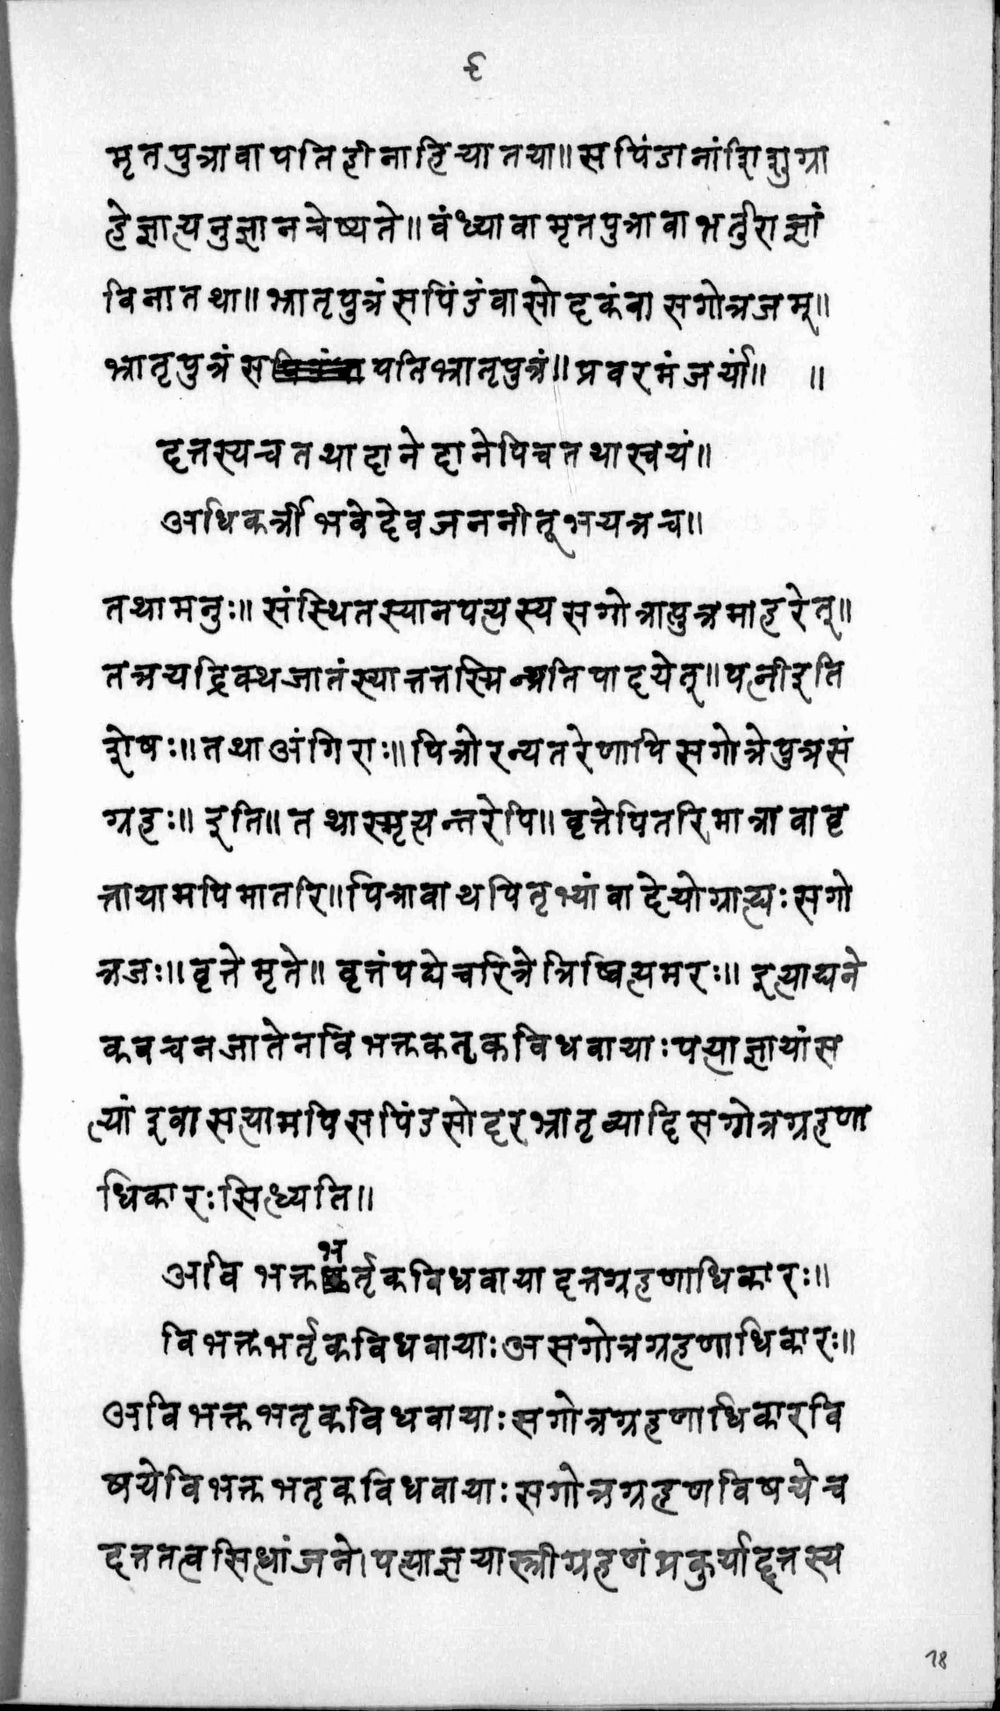 ६
मृतपुत्रावापतिहीनाहियातया॥सपिंडानांशिशुग्रा
हेज्ञात्यनुज्ञानचेष्यते॥वंध्यावामृतपुत्रावाभर्तुराज्ञां
विनातथा॥भ्रातृपुत्रंसपिंडंवासोदकंवासगोत्रजम्॥
भ्रातृपुत्रंस पतिभ्रातृपुत्रं॥प्रवरमंजर्यां॥ ॥
दत्तस्यचतथादानेदानेपिचतथास्वयं॥
अधिकर्त्रीभवेदेवजननीतूभयत्रच॥
तथामनुः॥संस्थितस्यानपत्यस्यसगोत्रात्पुत्रमाहरेत्॥
तत्रयद्रिक्थजातंस्यात्तत्तस्मिन्प्रतिपादयेत्॥पत्नीइति
शेषः॥तथाअंगिराः॥पित्रोरन्यतरेणापिसगोत्रेपुत्रसं
ग्रहः॥इति॥तथास्मृत्यन्तरेपि॥वृत्तेपितरिमात्रावावृ
त्तायामपिमातरि॥पित्रावाथपितृभ्यांवादेयोग्राह्यःसगो
त्रजः॥वृत्तेमृते॥वृत्तंपद्येचरित्रेत्रिष्वित्यमरः॥इत्याद्यने
कवचनजातेनविभक्तकतृकविधवायाःपत्याज्ञायांस
त्यांइवासत्यामपिसपिंडसोदरभ्रातृव्यादिसगोत्रग्रहणा
धिकारःसिध्यति॥
अविभक्तभर्तृकविधवायादत्तग्रहणाधिकारः॥
विभक्तभर्तृकविधवायाःअसगोत्रग्रहणाधिकारः॥
अविभक्तभतृकविधवायाःसगोत्रग्रहणाधिकारवि
षयेविभक्तभतृकविधवायाःसगोत्रग्रहणविषयेच
दत्ततत्वसिध्यांजने।पत्याज्ञयास्त्रीग्रहणंप्रकुर्याद्दत्तस्य
18